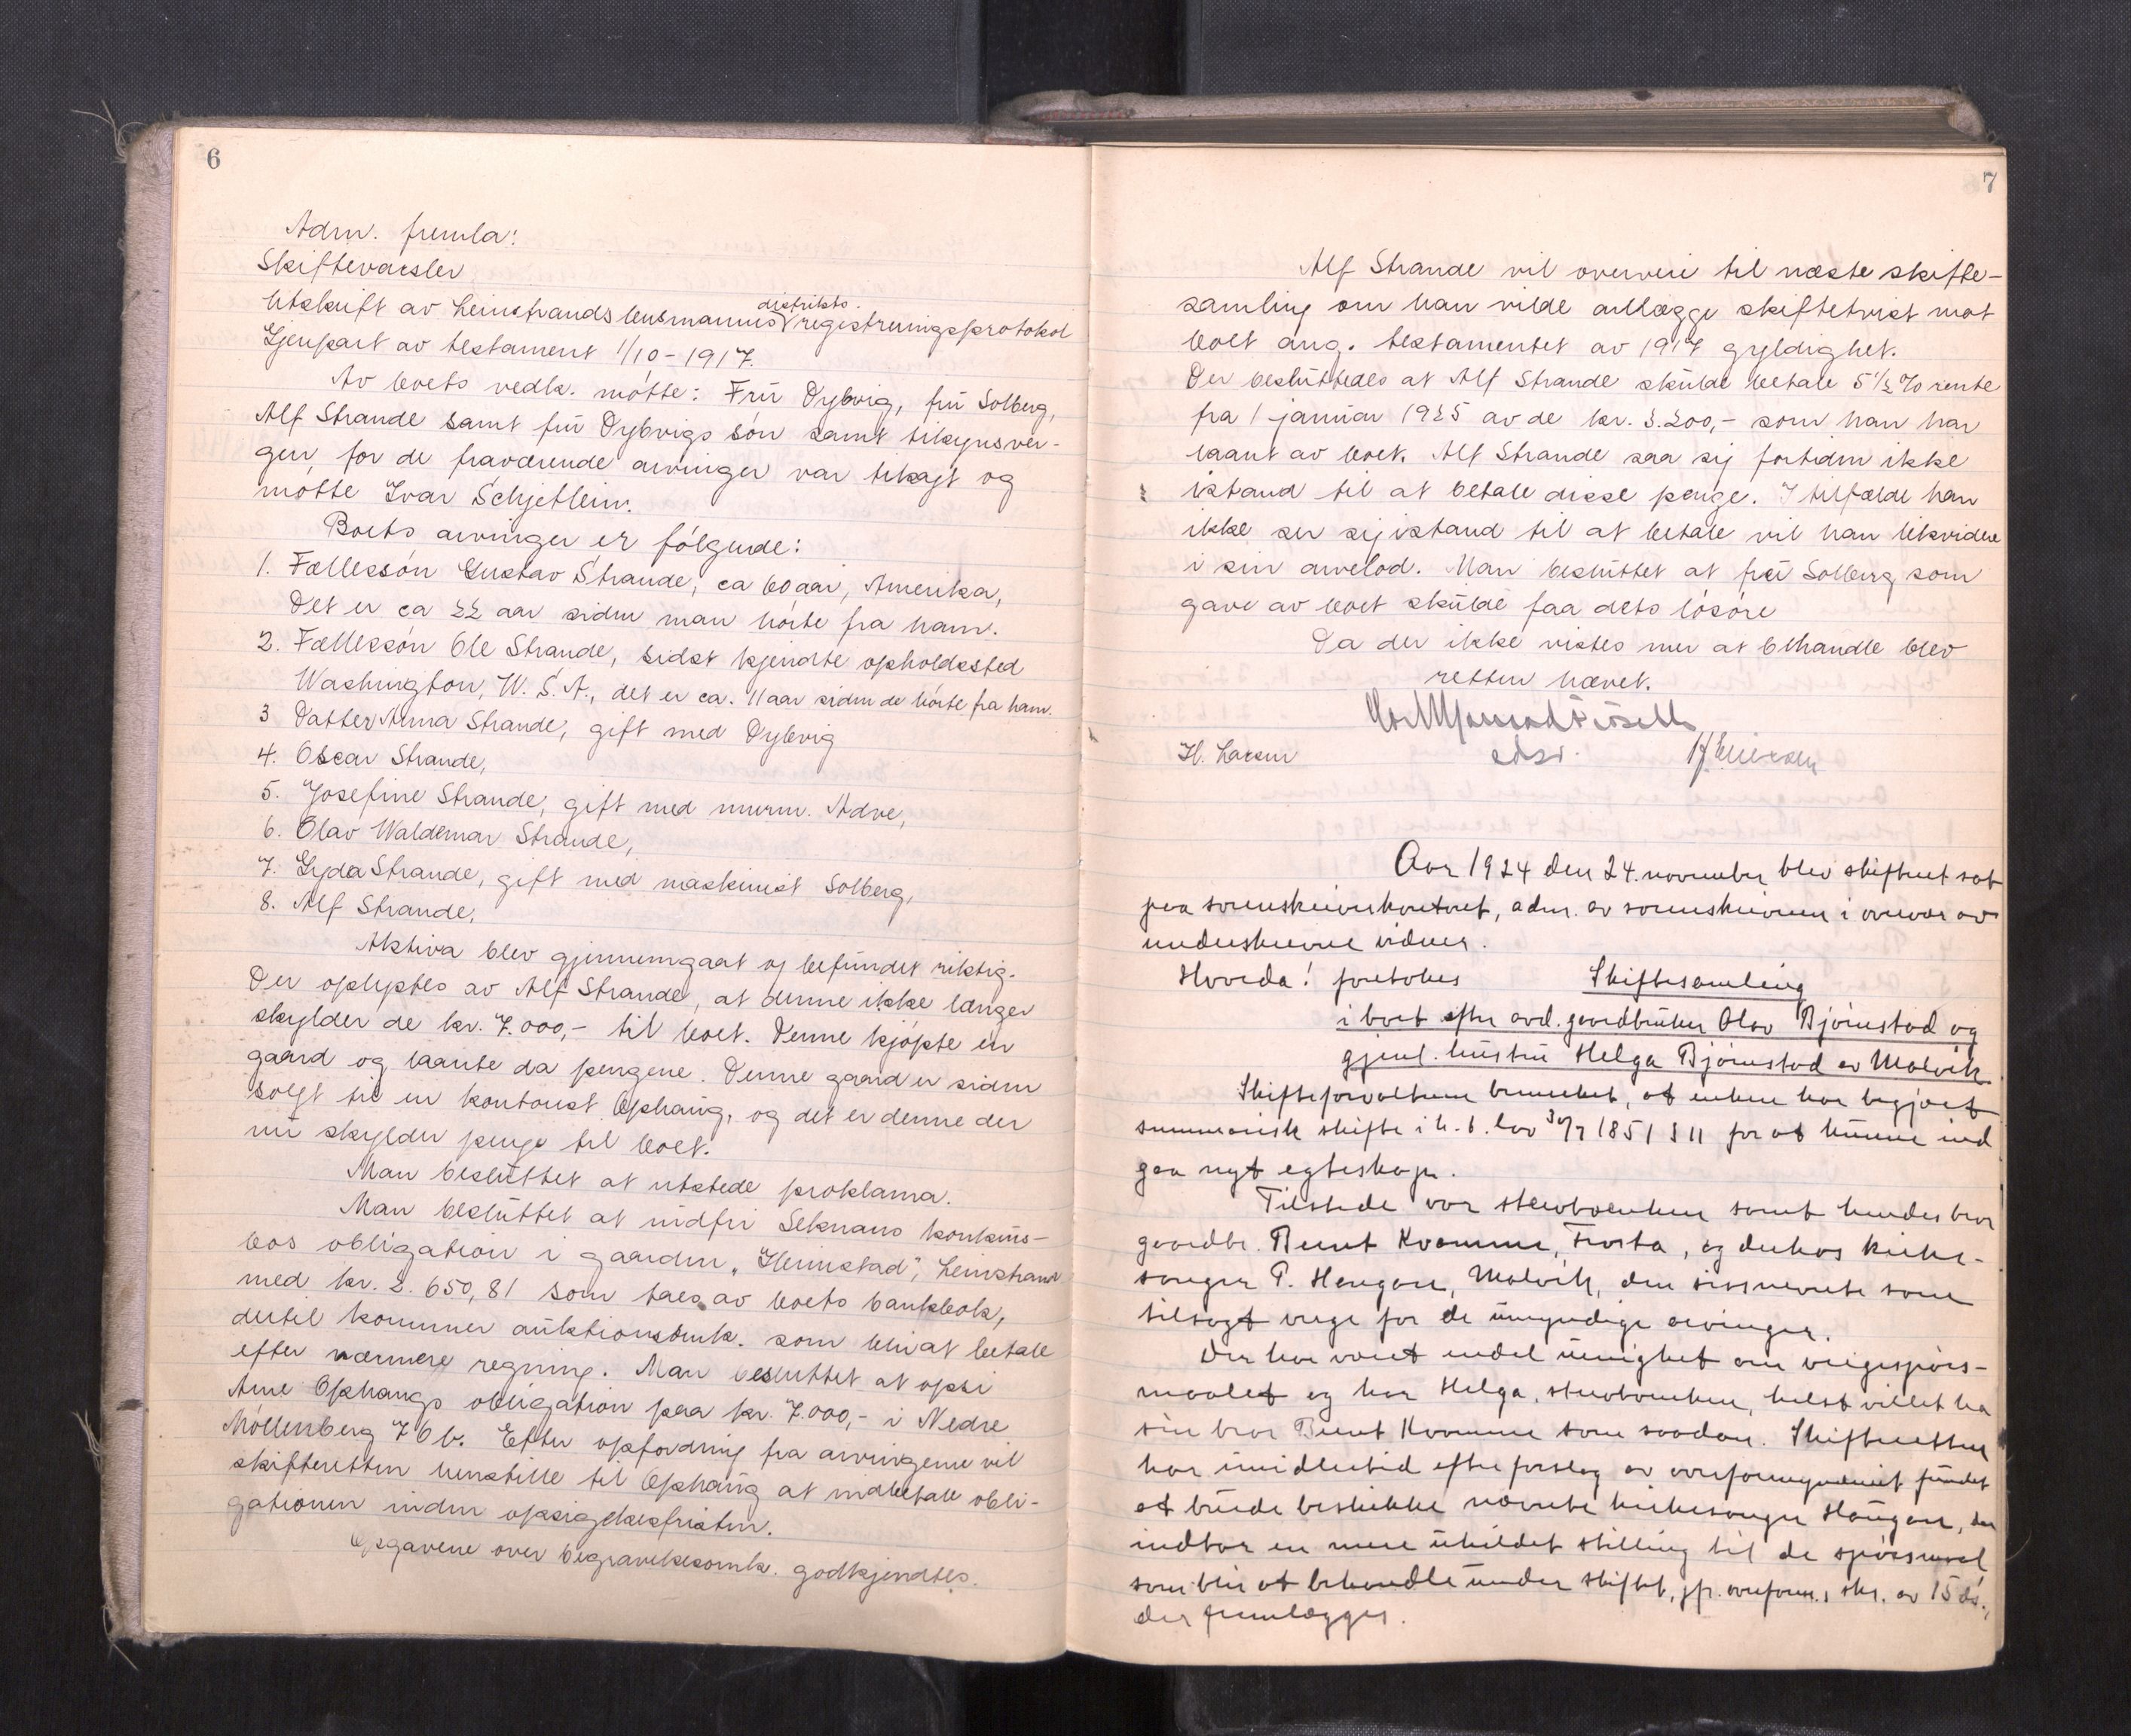 6
Adm. fremla:
Skiftevarsler
Utskrift av Leinstrands lensmanns distrikts. registreringsprotokol
Gjenpart av testament 1/10-1917.
Av boets vedk. møtte: Fru Dybvig, fru Solberg,
Alf Strande samt fru Dybvigs søn samt tilsynsver-
gen, for de fraværende arvinger var tilsagt og
møtte Ivar Schjetlein.
Boets arvinger er følgende:
1. Fællessøn Gustav Strande, ca 60 aar, Amerika,
Det er ca 22 aar siden man hørte fra ham.
2. Fællessøn Ole Strande, sidst kjendte opholdssted
Washington, W. S. A., det er ca. 11 aar siden de hørte fra ham.
3 Datter Anna Strande, gift med Dybvig
4. Oscar Strande,
5. Josefine Strande, gift med murm. Adve,
6. Olav Waldemar Strande,
7. Gyda Strande, gift med maskinist Solberg,
8. Alf Strande,
Aktiva blev gjennemgaat og befundet riktig.
Der oplystes av Alf Strande, at denne ikke længer
skylder de kr. 7.000,- til boet. Denne kjøpte en
gaard og laante da pengene. Denne gaard er siden
solgt til en kontorist Ophaug, og det er denne der
nu skylder penge til boet.
Man besluttet at utstede proklama.
Man besluttet at indfri Seknans konkurs-
bos obligation i gaarden "Heimstad", Leinstrand
med kr. 2.650,81 som taes av boets bankbok,
dertil kommer auktionsomk. som blir at betale
efter nærmere regning. Man besluttet at opsi
Arne Ophaugs obligation paa kr. 7.000,- i Nedre
Møllenberg 76 b. Efter opfordring fra arvingene vil
skifteretten henstille til Ophaug at indbetale obli-
gationen inden opsigelsesfristen.
Opgavene over begravelsesomk. godkjendtes.
7
Alf Strande vil overveie til næste skifte-
samling om han vilde anlægge skiftetvist mot
boet ang. testamentet av 1917 gyldighet.
Der besluttedes at Alf Strande skulde betale 5 1/2 % rente
fra 1 januar 1925 av de kr. 3.200,- som han har
laant av boet. Alf Strande saa sig fortiden ikke
istand til at betale disse penge. I tilfælde han
ikke ser sig istand til at betale vil han likvidere
i sin arvelod. Man besluttet at fru Solberg som
gave av boet skulde faa dets løsøre
Da der ikke vistes mer at behandle blev
retten hævet.
H. Larsen
Aar 1924 den 24. november blev skifteret sat
paa sorenskriverkontoret, adm. av sorenskriveren i overvær av
underskrevne vidner.
Hvorda! foretokes Skiftesamling
i boet efter avd. gaardbruker Olav Bjørnstad og
gjenl. hustru Helga Bjørnstad av Malvik
Skifteforvalteren bemerket, at enken har begjært
summarisk skifte i h. t. lov 30/7 1851 § 11 for at kunne ind
gaa nyt egteskap.
Tilstede var stervboenken samt hendes bror
gaardbr. Bernt Kvamme, Frosta, og derhos kirke-
sanger P. Haugan, Malvik, den sisnevnte som
tilsagt verge for de umyndige arvinger.
Der har været endel uenighet om vergespørs-
maalet og har Helga, stervboenken, helst villet ha
sin bror Bernt Kvamme som saadan. Skifteretten
har imidlertid efter forslag av overformynderiet fundet
at burde beskikke nævnte kirkesanger Haugan, der
indtar en mere uhildet stilling til de spørsmaal
som blir at behandle under skiftet, jfr. overform.s skr. av 15 ds.,
der fremlægges.